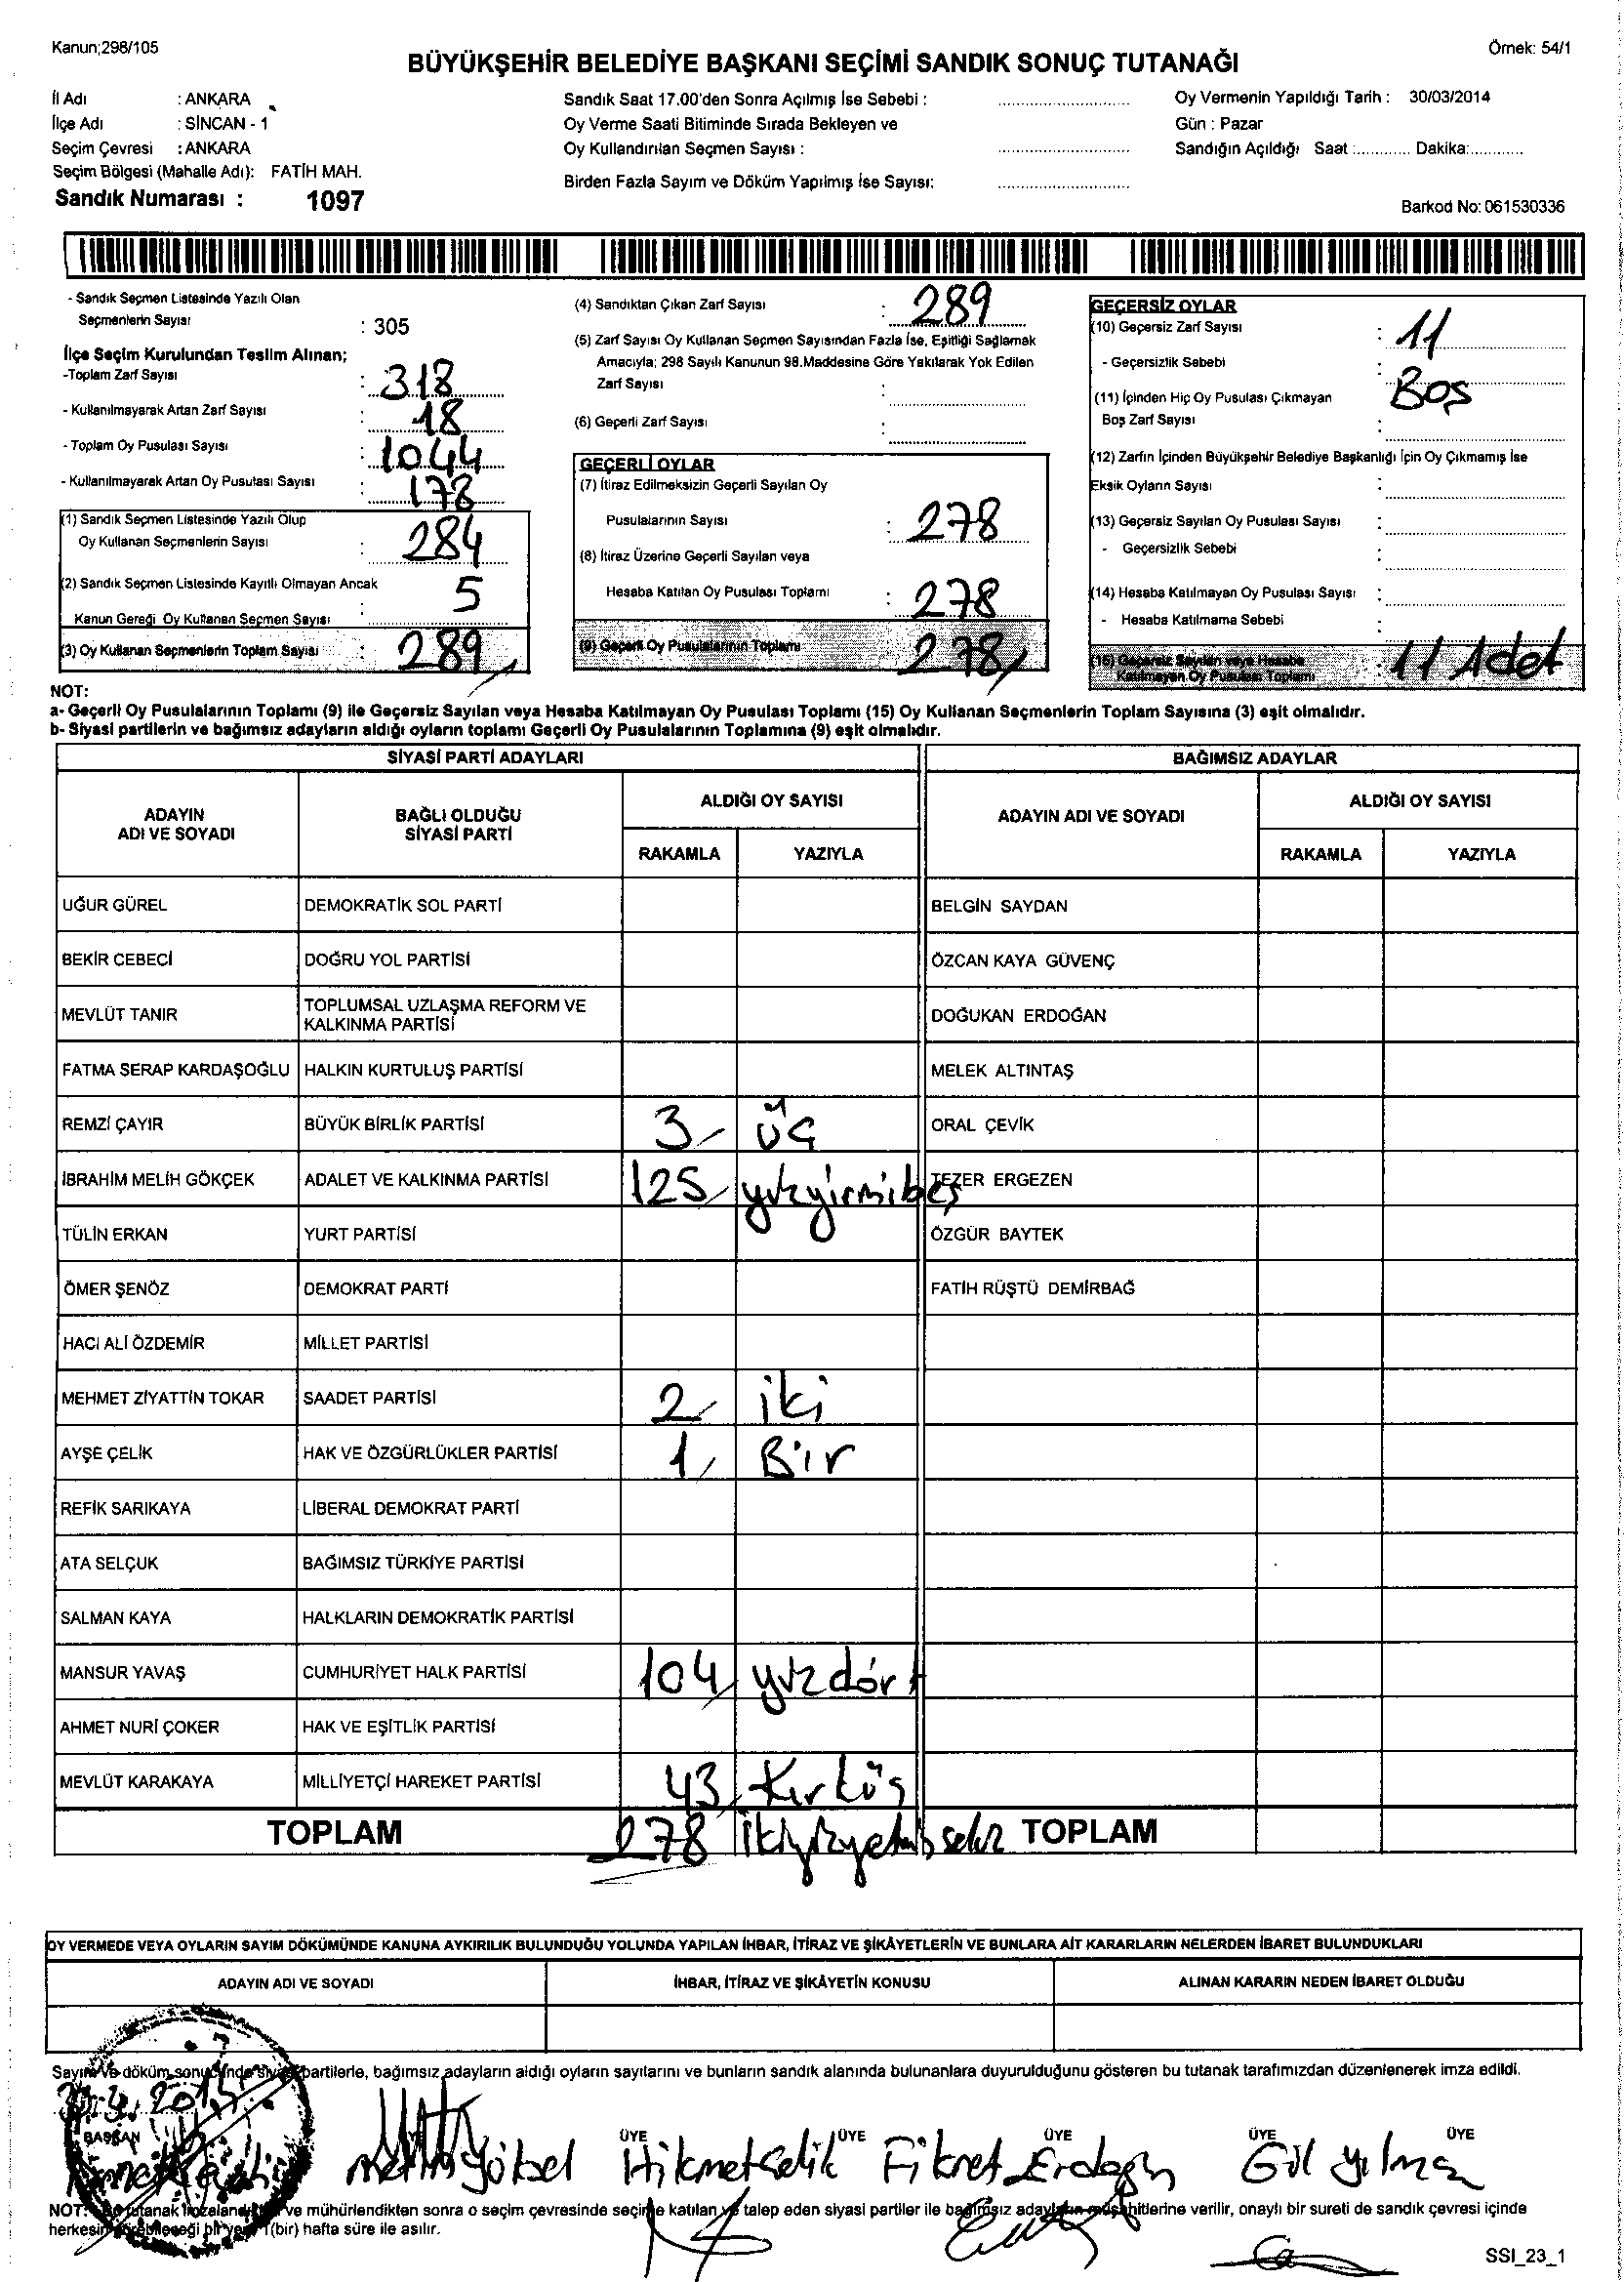 Kanun;298/105
Örnek: 54/1
BÜYÜKŞEHİR BELEDİYE BAŞKANI SEÇİMİ SANDIK SONUÇ TUTANAĞI
İl Adı : ANKARA
İlçe Adı : SİNCAN - 1
Seçim Çevresi : ANKARA
Seçim Bölgesi (Mahalle Adı): FATİH MAH.
Sandık Numarası : 1097
Sandık Saat 17.00'den Sonra Açılmış İse Sebebi :
Oy Verme Saati Bitiminde Sırada Bekleyen ve
Oy Kullandırılan Seçmen Sayısı :
Birden Fazla Sayım ve Döküm Yapılmış İse Sayısı:
Oy Vermenin Yapıldığı Tarih : 30/03/2014
Gün : Pazar
Sandığın Açıldığı Saat :............ Dakika:............
Barkod No: 061530336
- Sandık Seçmen Listesinde Yazılı Olan
Seçmenlerin Sayısı : 305
İlçe Seçim Kurulundan Teslim Alınan;
-Toplam Zarf Sayısı : 318
- Kullanılmayarak Artan Zarf Sayısı : 18
- Toplam Oy Pusulası Sayısı : 1044
- Kullanılmayarak Artan Oy Pusulası Sayısı : 178
(1) Sandık Seçmen Listesinde Yazılı Olup
Oy Kullanan Seçmenlerin Sayısı : 284
(2) Sandık Seçmen Listesinde Kayıtlı Olmayan Ancak
Kanun Gereği Oy Kullanan Seçmen Sayısı : 5
(3) Oy Kullanan Seçmenlerin Toplam Sayısı : 289
(4) Sandıktan Çıkan Zarf Sayısı : 289
(5) Zarf Sayısı Oy Kullanan Seçmen Sayısından Fazla İse, Eşitliği Sağlamak
Amacıyla; 298 Sayılı Kanunun 98.Maddesine Göre Yakılarak Yok Edilen
Zarf Sayısı :
(6) Geçerli Zarf Sayısı :
GEÇERLİ OYLAR
(7) İtiraz Edilmeksizin Geçerli Sayılan Oy
Pusulalarının Sayısı : 278
(8) İtiraz Üzerine Geçerli Sayılan veya
Hesaba Katılan Oy Pusulası Toplamı : 278
(9) Geçerli Oy Pusulalarının Toplamı 278
GEÇERSİZ OYLAR
(10) Geçersiz Zarf Sayısı : 11
- Geçersizlik Sebebi : Boş
(11) İçinden Hiç Oy Pusulası Çıkmayan
Boş Zarf Sayısı :
(12) Zarfın İçinden Büyükşehir Belediye Başkanlığı İçin Oy Çıkmamış İse
Eksik Oyların Sayısı :
(13) Geçersiz Sayılan Oy Pusulası Sayısı :
- Geçersizlik Sebebi :
(14) Hesaba Katılmayan Oy Pusulası Sayısı :
- Hesaba Katılmama Sebebi :
(15) Geçersiz Sayılan veya Hesaba
Katılmayan Oy Pusulası Toplamı : 11 Adet
NOT:
a- Geçerli Oy Pusulalarının Toplamı (9) ile Geçersiz Sayılan veya Hesaba Katılmayan Oy Pusulası Toplamı (15) Oy Kullanan Seçmenlerin Toplam Sayısına (3) eşit olmalıdır.
b- Siyasi partilerin ve bağımsız adayların aldığı oyların toplamı Geçerli Oy Pusulalarının Toplamına (9) eşit olmalıdır.
SİYASİ PARTİ ADAYLARI BAĞIMSIZ ADAYLAR
ADAYIN ADI VE SOYADI BAĞLI OLDUĞU SİYASİ PARTİ ALDIĞI OY SAYISI ADAYIN ADI VE SOYADI ALDIĞI OY SAYISI
RAKAMLA YAZIYLA RAKAMLA YAZIYLA
UĞUR GÜREL DEMOKRATİK SOL PARTİ BELGİN SAYDAN
BEKİR CEBECİ DOĞRU YOL PARTİSİ ÖZCAN KAYA GÜVENÇ
MEVLÜT TANIR TOPLUMSAL UZLAŞMA REFORM VE KALKINMA PARTİSİ DOĞUKAN ERDOĞAN
FATMA SERAP KARDAŞOĞLU HALKIN KURTULUŞ PARTİSİ MELEK ALTINTAŞ
REMZİ ÇAYIR BÜYÜK BİRLİK PARTİSİ 3 üç ORAL ÇEVİK
İBRAHİM MELİH GÖKÇEK ADALET VE KALKINMA PARTİSİ 125 yüzyirmibeş TEZER ERGEZEN
TÜLİN ERKAN YURT PARTİSİ ÖZGÜR BAYTEK
ÖMER ŞENÖZ DEMOKRAT PARTİ FATİH RÜŞTÜ DEMİRBAĞ
HACI ALİ ÖZDEMİR MİLLET PARTİSİ
MEHMET ZİYATTİN TOKAR SAADET PARTİSİ 2 iki
AYŞE ÇELİK HAK VE ÖZGÜRLÜKLER PARTİSİ 1 Bir
REFİK SARIKAYA LİBERAL DEMOKRAT PARTİ
ATA SELÇUK BAĞIMSIZ TÜRKİYE PARTİSİ
SALMAN KAYA HALKLARIN DEMOKRATİK PARTİSİ
MANSUR YAVAŞ CUMHURİYET HALK PARTİSİ 104 yüzdört
AHMET NURİ ÇOKER HAK VE EŞİTLİK PARTİSİ
MEVLÜT KARAKAYA MİLLİYETÇİ HAREKET PARTİSİ 43 Kırküç
TOPLAM 278 ikiyüzyetmişsekiz TOPLAM
OY VERMEDE VEYA OYLARIN SAYIM DÖKÜMÜNDE KANUNA AYKIRILIK BULUNDUĞU YOLUNDA YAPILAN İHBAR, İTİRAZ VE ŞİKÂYETLERİN VE BUNLARA AİT KARARLARIN NELERDEN İBARET BULUNDUKLARI
ADAYIN ADI VE SOYADI İHBAR, İTİRAZ VE ŞİKÂYETİN KONUSU ALINAN KARARIN NEDEN İBARET OLDUĞU
Sayım ve döküm sonucunda siyasi partilerle, bağımsız adayların aldığı oyların sayılarını ve bunların sandık alanında bulunanlara duyurulduğunu gösteren bu tutanak tarafımızdan düzenlenerek imza edildi.
BAŞKAN ÜYE ÜYE ÜYE ÜYE ÜYE
Metin Yüksel Hikmet Çelik Fikret Erdoğan Gül Yılmaz
NOT: Bu tutanak imzalandıktan ve mühürlendikten sonra o seçim çevresinde seçime katılan ve talep eden siyasi partiler ile bağımsız adayların müşahitlerine verilir, onaylı bir sureti de sandık çevresi içinde
herkesin görebileceği bir yere 1(bir) hafta süre ile asılır.
SSI_23_1